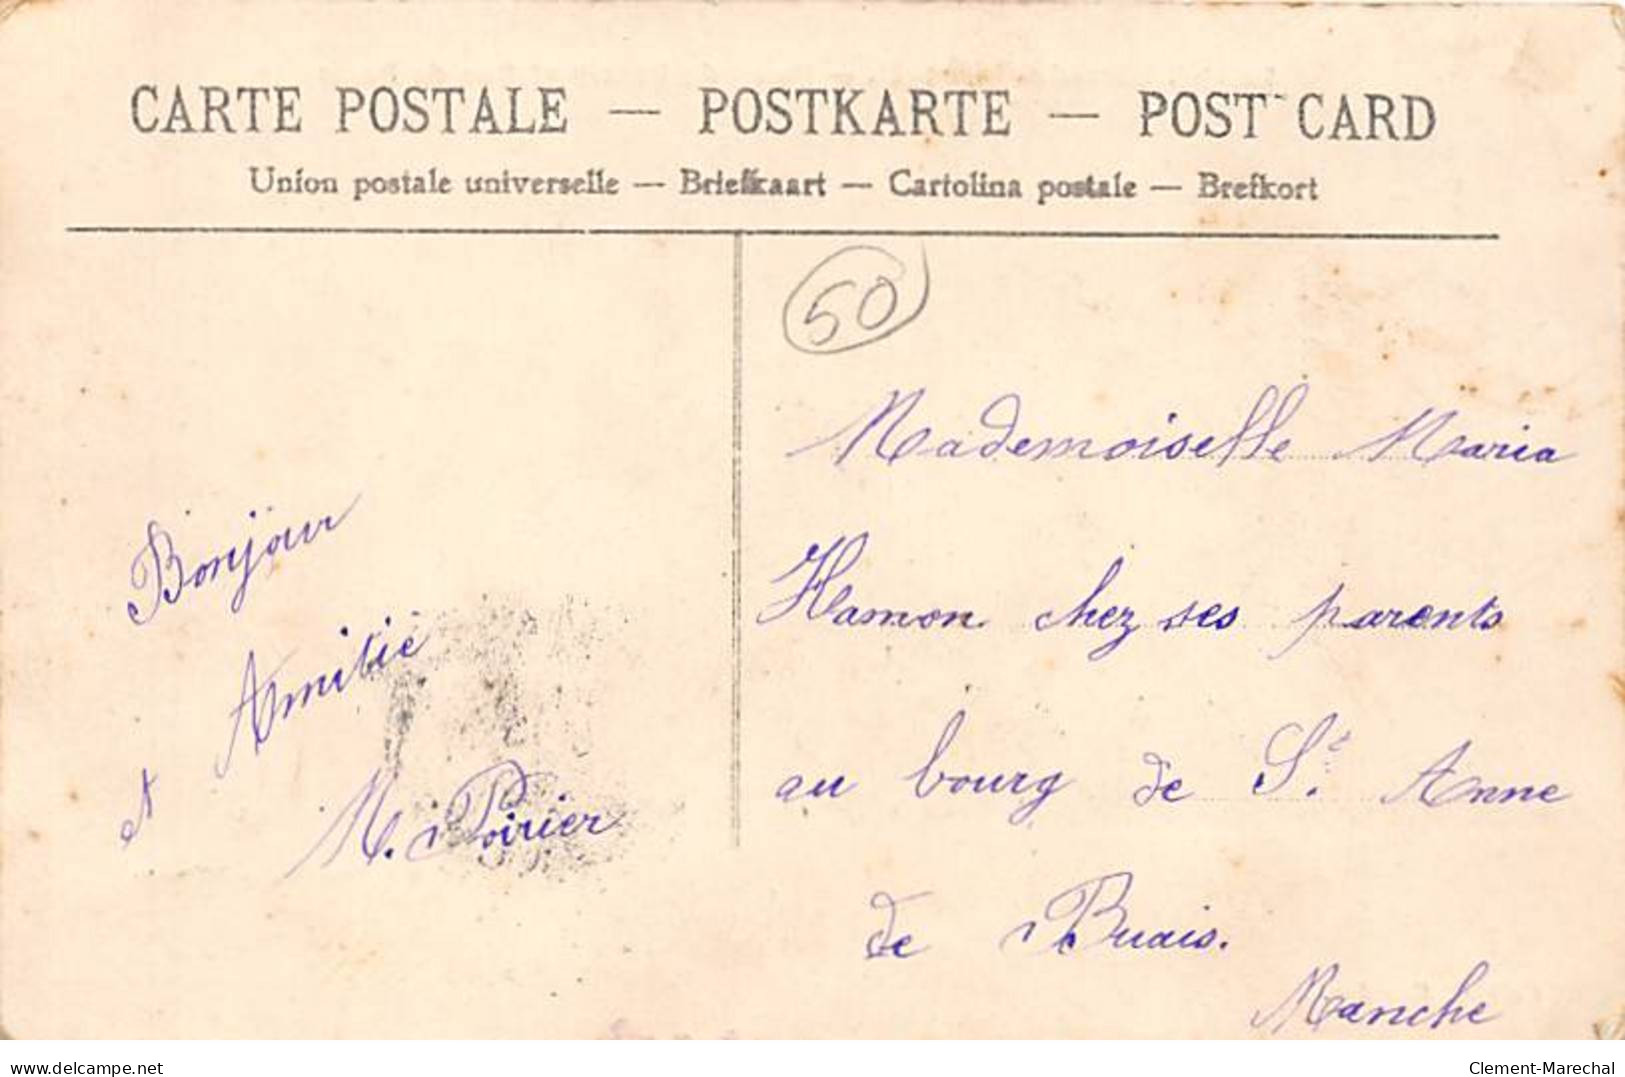 CARTE POSTALE — POSTKARTE — POST CARD
Union postale universelle — Briefkaart — Cartolina postale — Brefkort
50
Bonjour
et Amitié
M. Poirier
Mademoiselle Maria
Hamon chez ses parents
au bourg de St. Anne
de Buais.
Manche
www.delcampe.net
Clement-Marechal